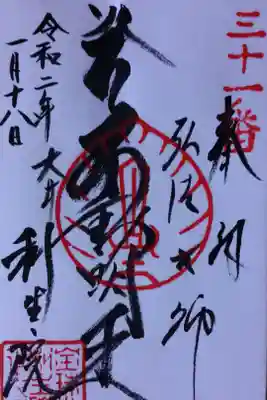 三十一番
奉拝
弘法大師
不動明王
大井 利生院
令和二年
一月十八日